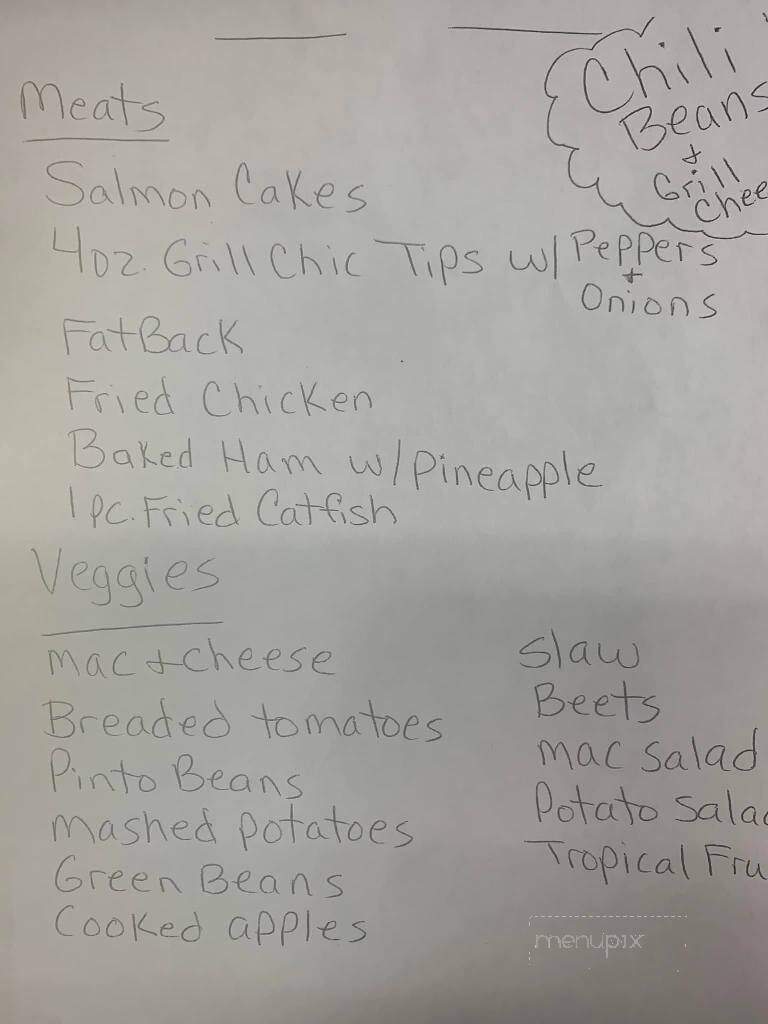 Chili
Beans
+
Grill
Chee
Meats
Salmon Cakes
4oz. Grill Chic Tips w/ Peppers
+
Onions
FatBack
Fried Chicken
Baked Ham w/Pineapple
1 pc. Fried Catfish
Veggies
mac + cheese
Breaded tomatoes
Pinto Beans
mashed potatoes
Green Beans
Cooked apples
slaw
Beets
mac salad
Potato Salad
Tropical Fru
menupix